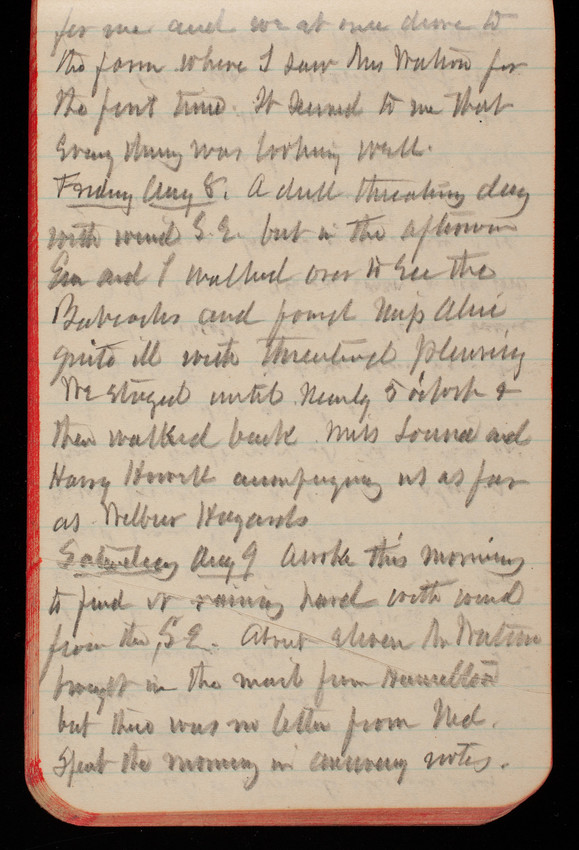 for me and we at once drove to
the farm where I saw Mrs Watson for
the first time. It seemed to me that
Every thing was looking well.
Friday Aug 8. A dull threatening day
with wind S.E. but in the afternoon
Em and I walked over to see the
Babcocks and found Miss Alice
quite ill with threatened pleurisy
We stayed until nearly 5 o'clock &
then walked back Miss Louna and
Harry Howell accompanying us as far
as Wilbur Hazards
Saturday Aug 9 Awoke this morning
to find it raining hard with wind
from the S.E. About eleven Mr Watson
brought in the mail from Hamilton
but there was no letter from Ned.
Spent the morning in answering notes.